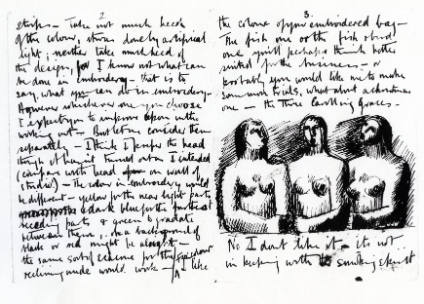 2
study – Take not much heed
of the colour, it was done by artificial
light, neither take much heed of
the design, for I know not what can
be done in embroidery – that is to
say, what you can do in embroidery.
However whichever one you choose
I expect you to improve upon in the
working out – But let me consider them
separately – I think I prefer the head
though if has it turned out as I intended
(compare with head on wall of
studio) – the colour in embroidery would
be different – yellow for the near light parts
dark blue for the furthest
receding parts & green to graduate
between them, on a background of
black or red might be alright –
the same sort of scheme for the
reclining nude would work – I like
3.
the colour of your embroidered bag –
The fish one or the fish & bird
one might perhaps be much better
suited for the business – or
probably you would like me to make
some more trials, what about a christmas
one – the three Carolling Graces –
No I dont like it – its not
in keeping with smoking & spirit